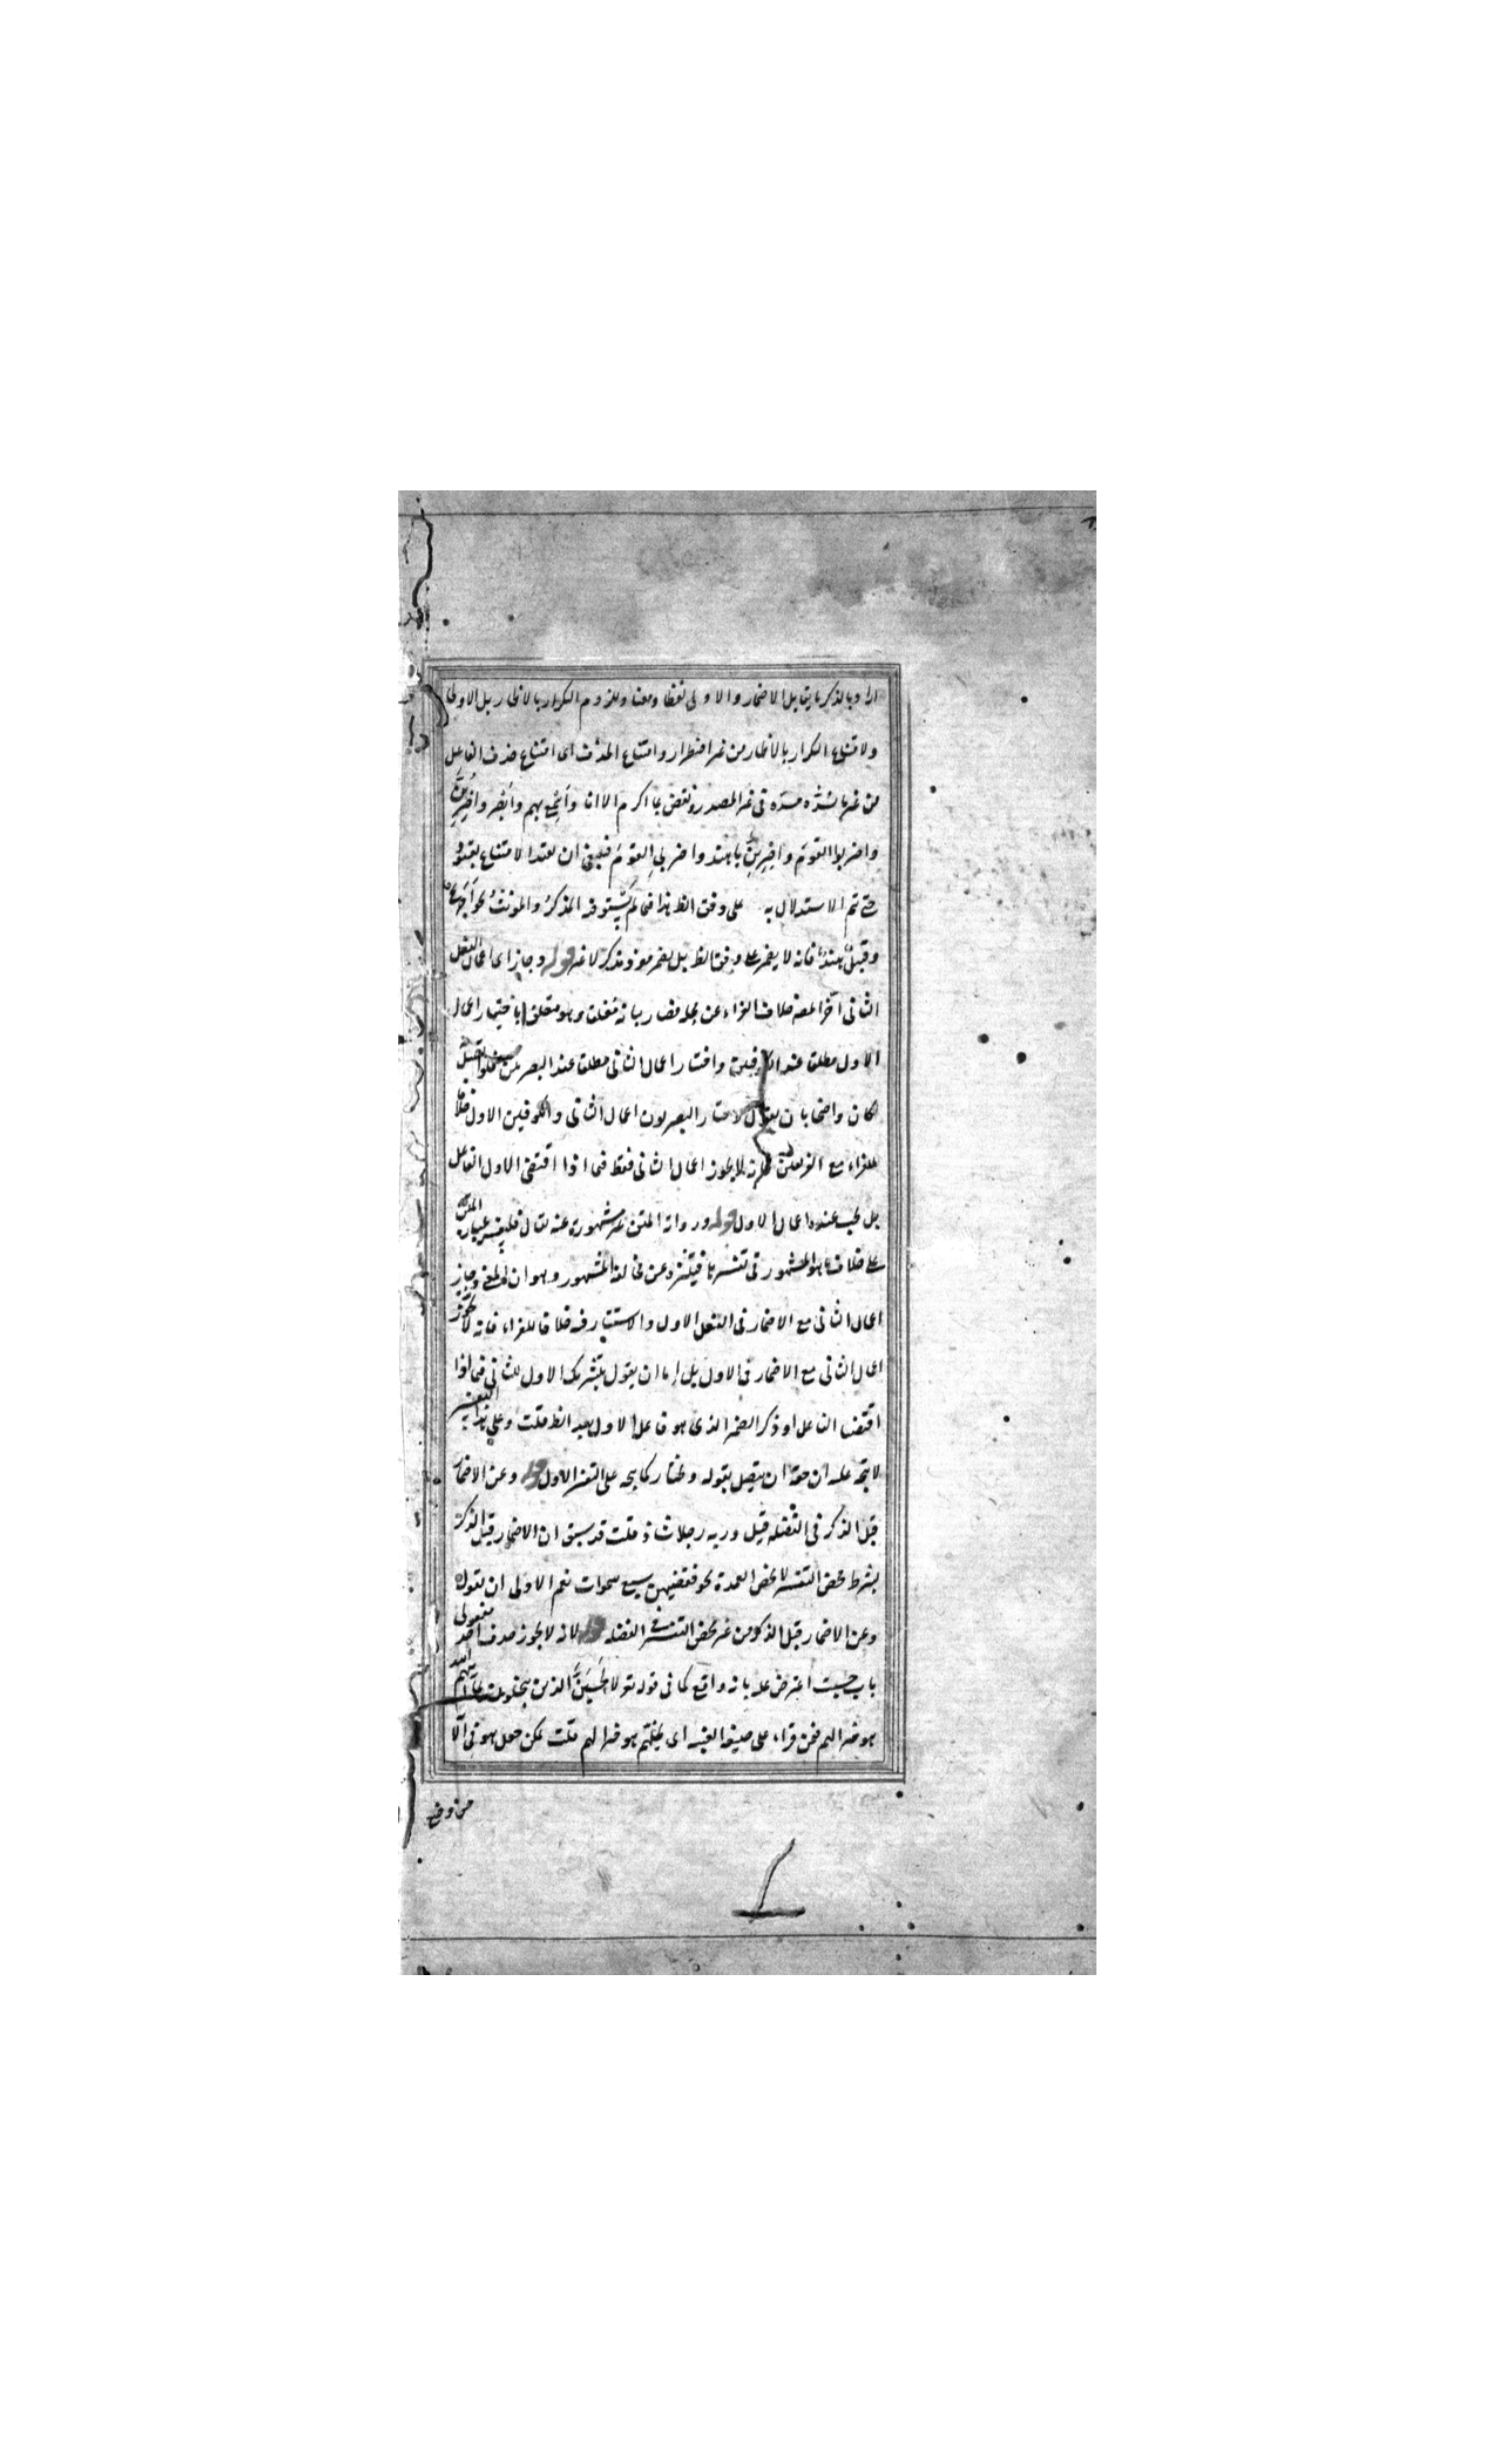 اراد بالذكر ما يقابل الاضمار والاولى لفظا ومعنا وللزوم التكرار بالاظهار بل الاولى
ولامتناع التكرار بالاظهار من غير اضطرار وامتناع الحذف اى امتناع حذف الفاعل
من غير ما سدّه مسدّه فى غير المصدر ونقض بما اكرم الا انا واَسْمِع بهم وابْصِر واضربنّ
واضربوا القوم واضربِنّ يا هند واضربى القوم فينبغى ان يقيد الامتناع بقيود
حتى تم الاستدلال به على وفق الظ هذا فيما لم يستو فيه المذكر والمونث نحو
فانه لا يضمر على وفق الظ بل يضمر مفرد مذكر لا غير قوله وجاز اى اعمال الفعل
الثانى خلافا للفراء عن وهو متعلق باختيار اعمال
الاول مطلقا عند الكوفيين واختيار اعمال الثانى مطلقا عند البصريين
لكان واضحا بان يقول لاختار البصريون اعمال الثانى والكوفيين الاول خلافا
للفراء مع الفريقين فانه لا يجوز اعمال الثانى فقط فيما اذا اقتضى الاول الفاعل
بل يجب عنده اعمال الاول قوله ورواية المتن غير مشهورة عنه لقال فليفسر عبارة المتن
على خلاف ما هو المشهور فى تفسيرها فيتنزه عن مخالفة المشهور وهو ان المعنى وجاز
اعمال الثانى مع الاضمار فى الفعل الاول والاستتار فيه خلافا للفراء فانه لا يجوز
اعمال الثانى مع الاضمار فى الاول بل إما ان يقول بتشريك الاول للثانى فيما اذا
اقتضيا الفاعل او ذكر الضمير الذى هو فاعل الاول بعد الظ قلت وعلى هذا التفسير
لا يتجه عليه ان حقه ان يتصل بقوله ويختار كما يتجه على التفسير الاول قوله وعن الاضمار
قبل الذكر فى الفضلة قيل وربه رجلا شاذ قلت قد سبق ان الاضمار قبل الذكر
بشرط محض التفسير لا يخص العمدة نحو فقضيهن سبع سموات نعم الاولى ان يقول
وعن الاضمار قبل الذكر من غير محض التفسير فى الفضلة قوله لانه لا يجوز حذف احد مفعولى
باب حسبت اعترض عليه بانه واقع كما فى قوله تع ولا تحسبنّ الذين يبخلون بما آتيهم الله
هو خيرا لهم فيمن قراء على صيغة الغيبة اى بخلهم هو خيرا لهم قلت يمكن جعل هو فى الآ
من وضع